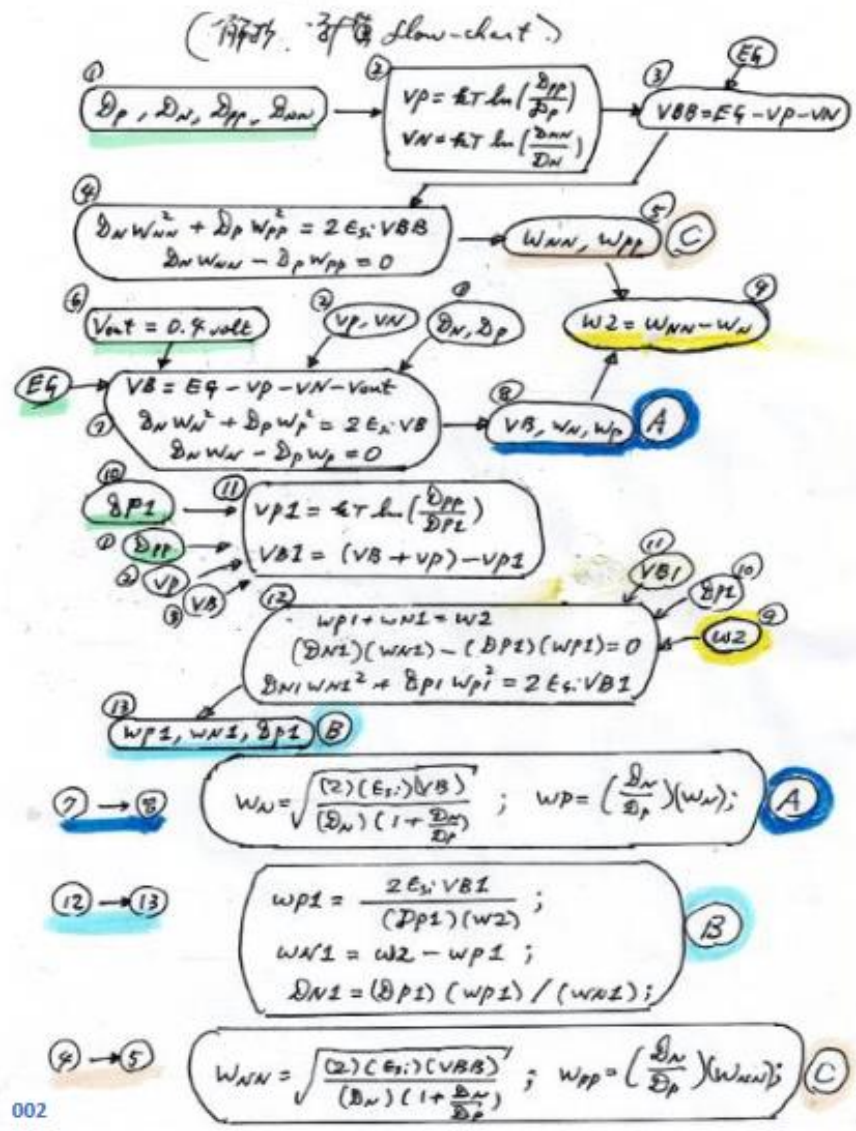 (解法、計算 flow-chart)
① ② ③ EG
Dp, DN, Dpp, DNN
VP = kT ln(Dpp/Dp)
VN = kT ln(DNN/DN)
VBB = EG - VP - VN
④
DN WNN² + Dp Wpp² = 2 Esi VBB
DN WNN - Dp Wpp = 0
⑤
WNN, Wpp C
⑥
Vout = 0.4 volt
② VP, VN
① DN, Dp
⑨
W2 = WNN - WN
EG
⑦
VB = EG - VP - VN - Vout
DN WN² + Dp Wp² = 2 Esi VB
DN WN - Dp Wp = 0
⑧
VB, WN, Wp A
⑩
DP1
① Dpp
② VP
③ VB
⑪
VP1 = kT ln(Dpp/DP1)
VB1 = (VB + VP) - VP1
⑪ VB1
⑩ DP1
⑨ W2
⑫
WP1 + WN1 = W2
(DN1)(WN1) - (DP1)(WP1) = 0
DN1 WN1² + DP1 WP1² = 2 Esi VB1
⑬
WP1, WN1, DP1 B
⑦ → ⑧
WN = √((2)(Esi)(VB) / (DN)(1 + DN/Dp)) ; WP = (DN/Dp)(WN); A
⑫ → ⑬
WP1 = 2 Esi VB1 / (DP1)(W2) ;
WN1 = W2 - WP1 ;
DN1 = (DP1)(WP1) / (WN1); B
④ → ⑤
WNN = √((2)(Esi)(VBB) / (DN)(1 + DN/Dp)) ; Wpp = (DN/Dp)(WNN); C
002